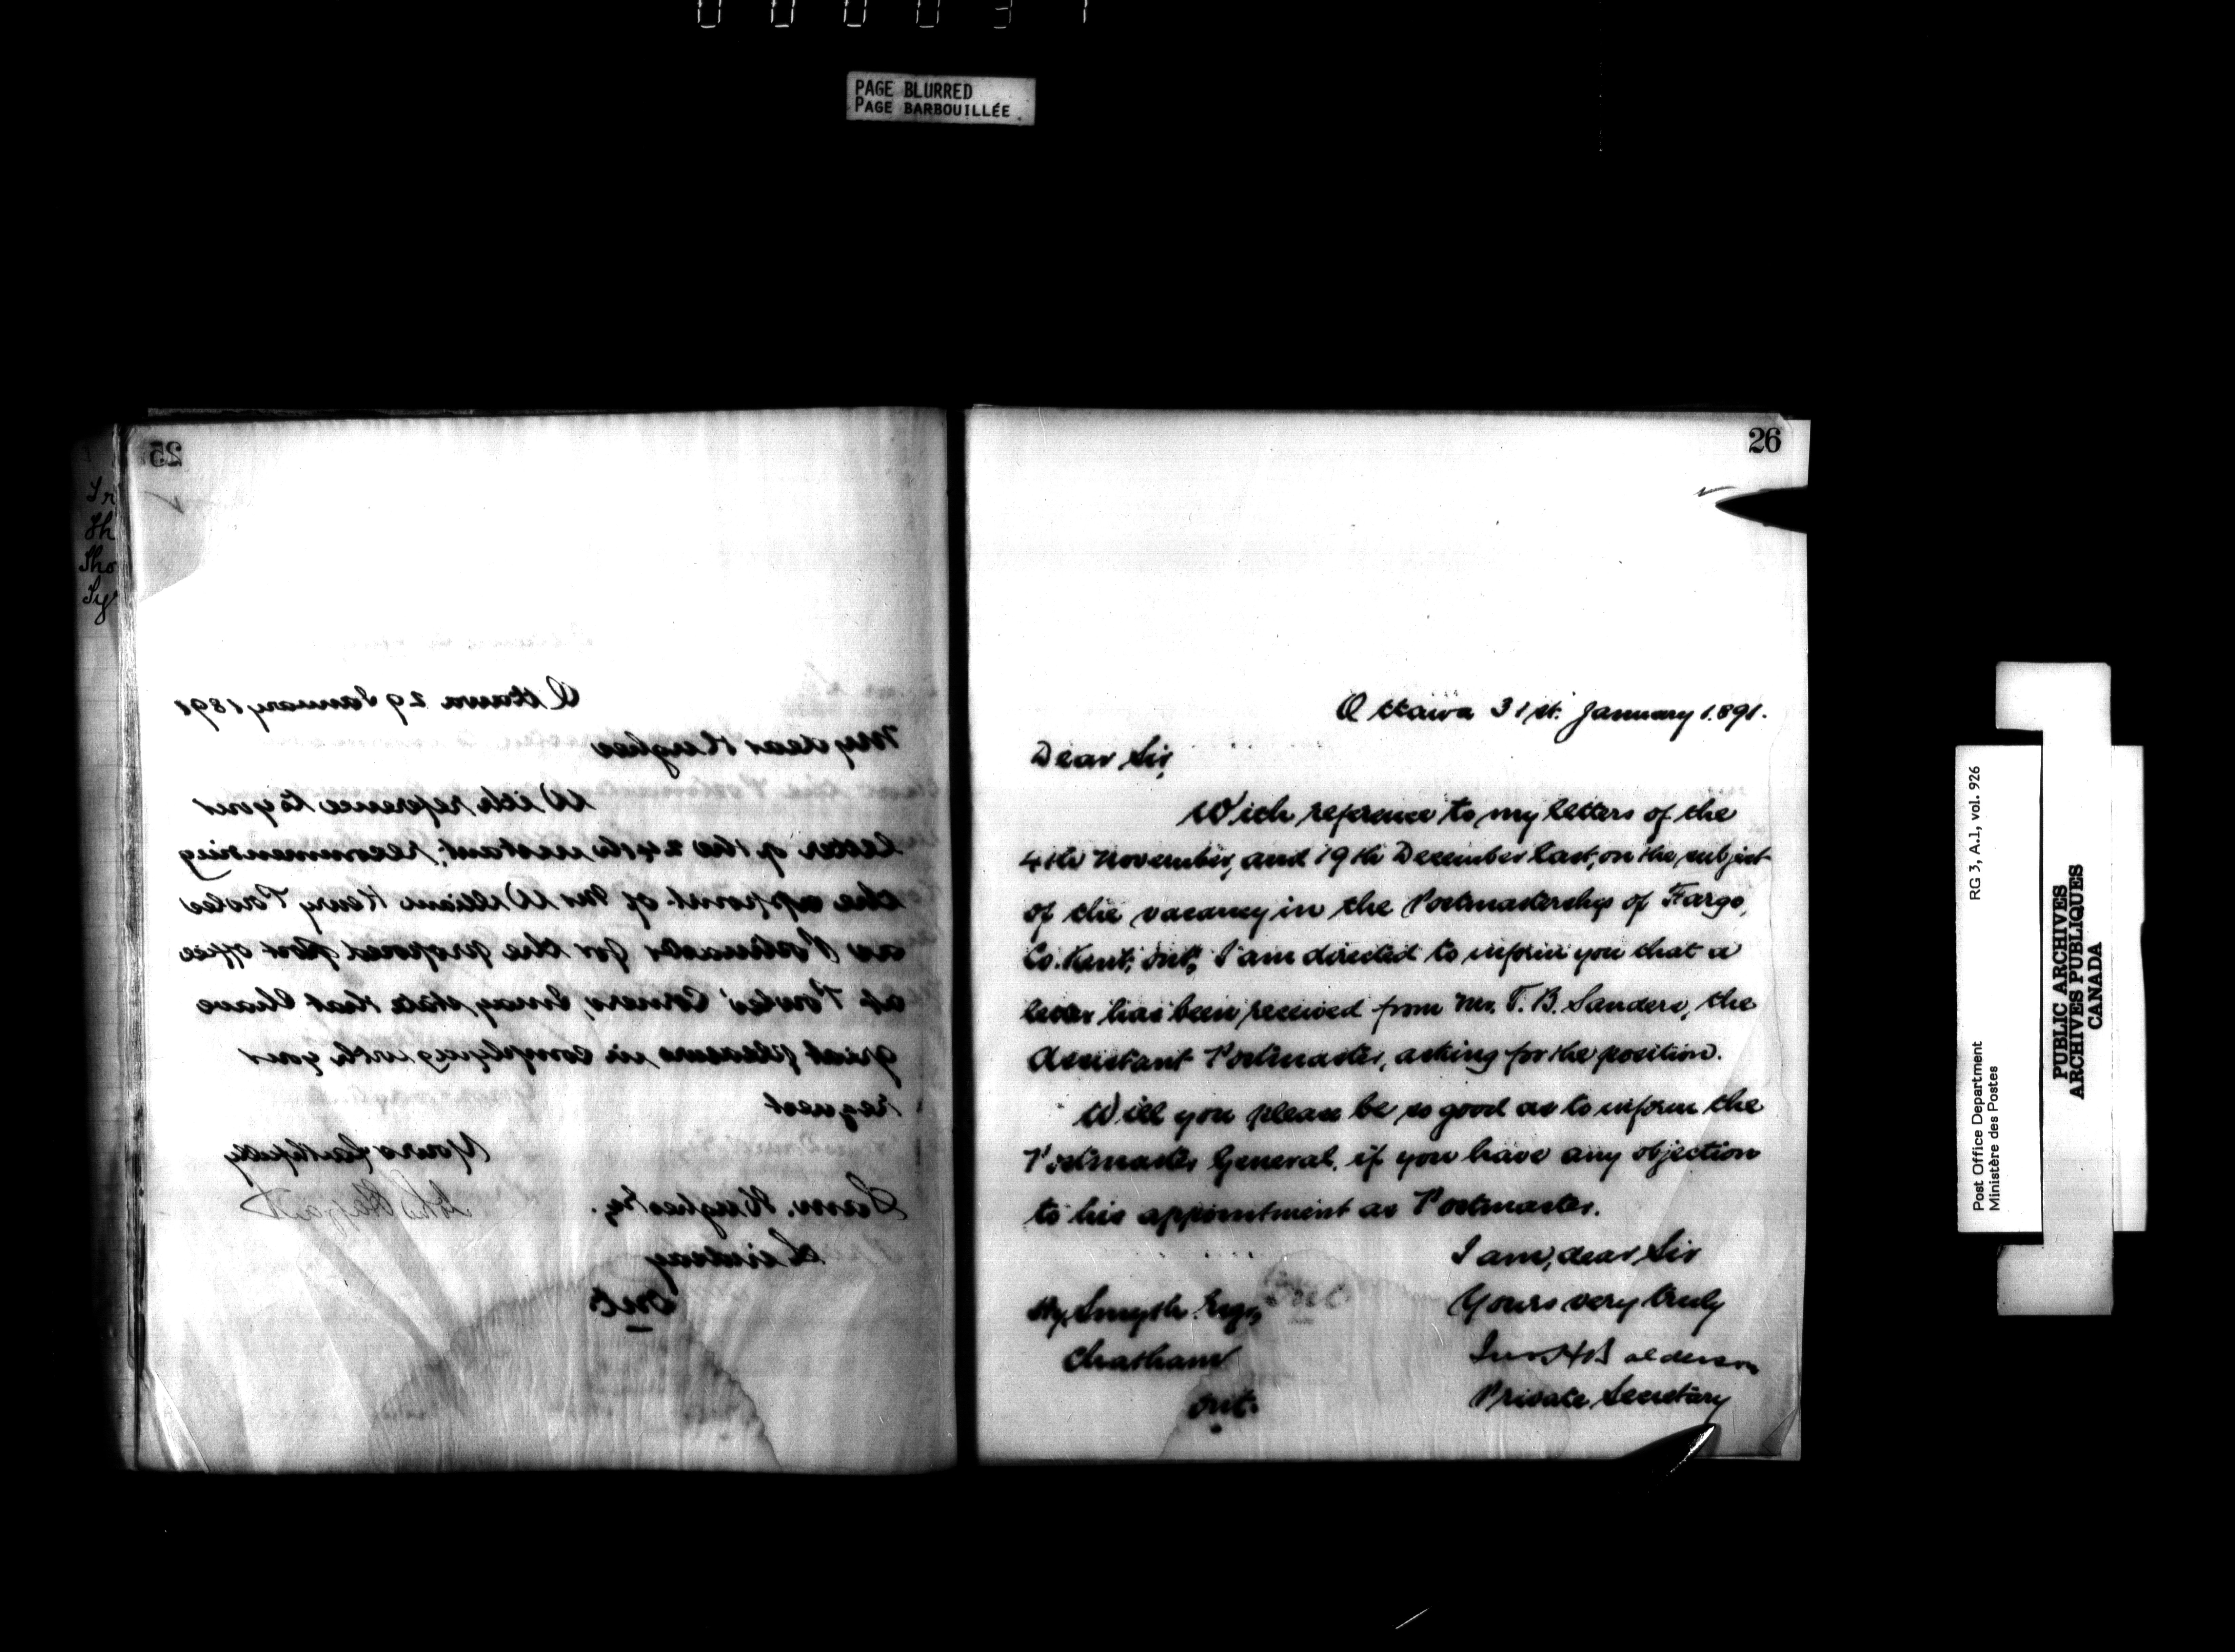 PAGE BLURRED
PAGE BARBOUILLÉE
25
Ottawa 29 January 1891
My dear Hughes
With reference to your
letter of the 24th instant, recommending
the appoint. of Mr William Henry Powles
as Postmaster for the proposed post office
at Powles' Corners, I may state that I have
great pleasure in complying with your
request
Yours faithfully
Jno Haggart
Sam. Hughes Esq.
Lindsay
Ont
26
Ottawa 31st. January 1891.
Dear Sir,
With reference to my letters of the
4th November, and 19th December last, on the subject
of the vacancy in the Postmastership of Fargo,
Co. Kent, Ont, I am directed to inform you that a
letter has been received from Mr. T. B. Sanders, the
Assistant Postmaster, asking for the position.
Will you please be so good as to inform the
Postmaster General, if you have any objection
to his appointment as Postmaster.
I am, dear Sir
Yours very truly
Jno H B alderson
Private Secretary
Hy. Smyth Esq,
Chatham
Ont.
Sn
Th
Tho
Sy
RG 3, A.1, vol. 926
Post Office Department
Ministère des Postes
PUBLIC ARCHIVES
ARCHIVES PUBLIQUES
CANADA